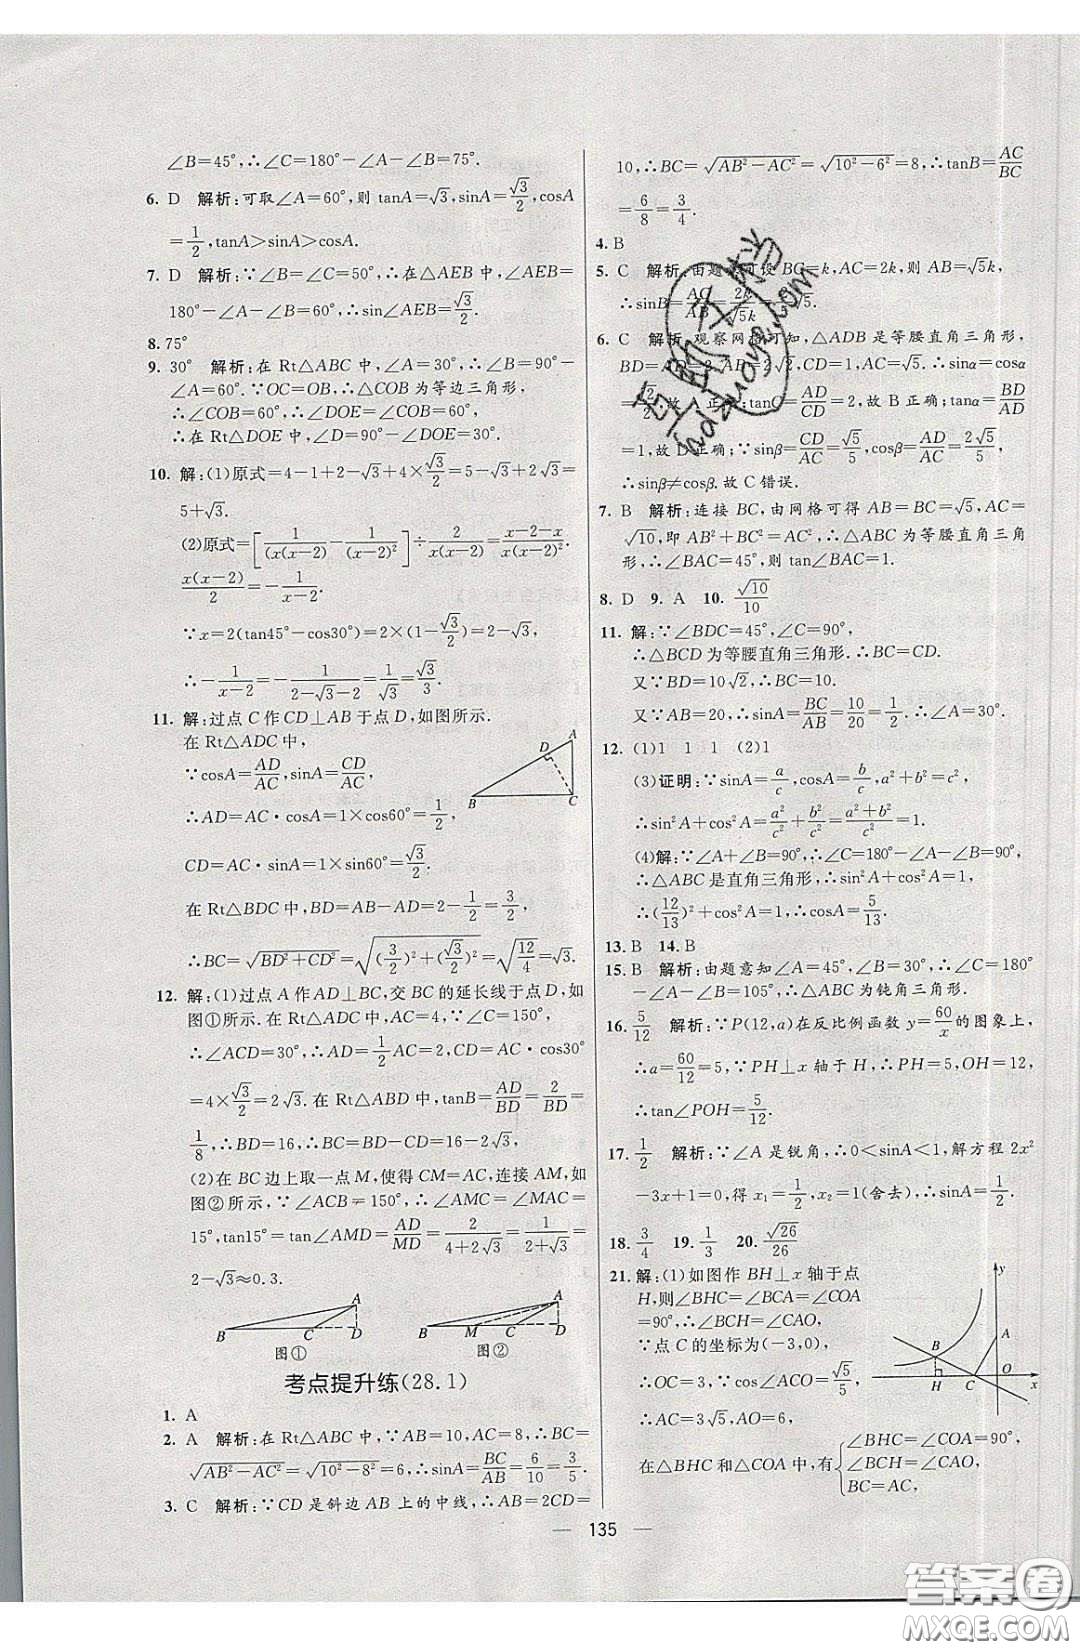 ∠B=45°,∴∠C=180°-∠A-∠B=75°.
6. D 解析:可取∠A=60°,则 tanA=√3,sinA=√3/2,cosA
=1/2,tanA>sinA>cosA.
7. D 解析:∵∠B=∠C=50°,∴在△AEB 中,∠AEB=
180°-∠A-∠B=60°,∴sin∠AEB=√3/2.
8. 75°
9. 30° 解析:在 Rt△ABC 中,∠A=60°,∴∠B=90°-
∠A=60°.∵OC=OB,∴△COB 为等边三角形,
∴∠COB=60°,∴∠DOE=∠COB=60°.
∴在 Rt△DOE 中,∠D=90°-∠DOE=30°.
10. 解:(1)原式=4-1+2-√3+4×√3/2=5-√3+2√3=
5+√3.
(2)原式=[1/(x(x-2))-1/(x-2)²]÷2/(x(x-2))=(x-2-x)/(x(x-2)²)·
x(x-2)/2=-1/(x-2).
∵x=2(tan45°-cos30°)=2×(1-√3/2)=2-√3,
∴-1/(x-2)=-1/(2-√3-2)=1/√3=√3/3.
11. 解:过点 C 作 CD⊥AB 于点 D,如图所示.
在 Rt△ADC 中,
∵cosA=AD/AC,sinA=CD/AC,
∴AD=AC·cosA=1×cos60°=1/2,
CD=AC·sinA=1×sin60°=√3/2.
在 Rt△BDC 中,BD=AB-AD=2-1/2=3/2,
∴BC=√(BD²+CD²)=√((3/2)²+(√3/2)²)=√(12/4)=√3.
A
D
B
C
12. 解:(1)过点 A 作 AD⊥BC,交 BC 的延长线于点 D,如
图①所示.在 Rt△ADC 中,AC=4,∵∠C=150°,
∴∠ACD=30°,∴AD=1/2AC=2,CD=AC·cos30°
=4×√3/2=2√3.在 Rt△ABD 中,tanB=AD/BD=2/BD=
1/8,∴BD=16,∴BC=BD-CD=16-2√3.
(2)在 BC 边上取一点 M,使得 CM=AC,连接 AM,如
图②所示,∵∠ACB=150°,∴∠AMC=∠MAC=
15°,tan15°=tan∠AMD=AD/MD=2/(4+2√3)=1/(2+√3)=
2-√3≈0.3.
A
B C D
图①
A
B M C D
图②
考点提升练(28.1)
1. A
2. A 解析:在 Rt△ABC 中,∵AB=10,AC=8,∴BC=
√(AB²-AC²)=√(10²-8²)=6,∴sinA=BC/AB=6/10=3/5.
3. C 解析:∵CD 是斜边 AB 上的中线,∴AB=2CD=
10,∴BC=√(AB²-AC²)=√(10²-6²)=8,∴tanB=AC/BC
=6/8=3/4.
4. B
5. C 解析:由题 可设 BC=k,AC=2k,则 AB=√5k,
∴sinB=AC/AB=2k/√5k= √5.
6. C 解析:观察网格可知,△ADB 是等腰直角三角形,
BD=AD=2,AB=2√2,CD=1,AC=√5,∴sinα=cosα=
√2/2,故 A 正确;tanC=AD/CD=2,故 B 正确;tanα=BD/AD
=1,故 D 正确;∵sinβ=CD/AC=√5/5,cosβ=AD/AC=2√5/5,
∴sinβ≠cosβ.故 C 错误.
7. B 解析:连接 BC,由网格可得 AB=BC=√5,AC=
√10,即 AB²+BC²=AC²,∴△ABC 为等腰直角三角
形,∴∠BAC=45°,则 tan∠BAC=1.
8. D 9. A 10. √10/10
11. 解:∵∠BDC=45°,∠C=90°,
∴△BCD 为等腰直角三角形.∴BC=CD.
又∵BD=10√2,∴BC=10.
又∵AB=20,∴sinA=BC/AB=10/20=1/2.∴∠A=30°.
12. (1)1 1 1 (2)1
(3)证明:∵sinA=a/c,cosA=b/c,a²+b²=c²,
∴sin²A+cos²A=a²/c²+b²/c²=(a²+b²)/c²=1.
(4)解:∵∠A+∠B=90°,∴∠C=180°-∠A-∠B=90°,
∴△ABC 是直角三角形,∴sin²A+cos²A=1,
∴(12/13)²+cos²A=1,∴cosA=5/13.
13. B 14. B
15. B 解析:由题意知∠A=45°,∠B=30°,∴∠C=180°
-∠A-∠B=105°,∴△ABC 为钝角三角形.
16. 5/12 解析:∵P(12,a)在反比例函数 y=60/x 的图象上,
∴a=60/12=5,∵PH⊥x 轴于 H,∴PH=5,OH=12,
∴tan∠POH=5/12.
17. 1/2 解析:∵∠A 是锐角,∴0<sinA<1,解方程 2x²
-3x+1=0,得 x₁=1/2,x₂=1(舍去),∴sinA=1/2.
18. 3/4 19. 1/3 20. √26/26
21. 解:(1)如图作 BH⊥x 轴于点
H,则∠BHC=∠BCA=∠COA
=90°,∴∠BCH=∠CAO,
∵点 C 的坐标为(-3,0),
∴OC=3,∵cos∠ACO=√5/5,
∴AC=3√5,AO=6,
在△BHC 和△COA 中,有{∠BHC=∠COA=90°,
∠BCH=∠CAO,
BC=AC,
y
A
B
O
H C x
135
答案圈
MXQE.COM